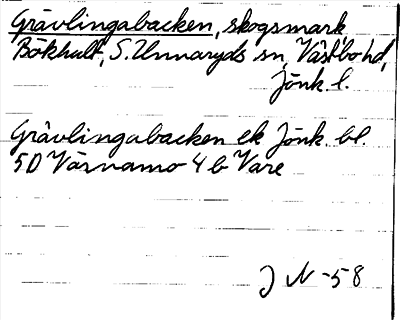 Grävlingabacken, skogsmark
Bökhult, S. Unnaryds sn, Västbo hd,
Jönk. l.
Grävlingabacken ek Jönk. bl.
5D Värnamo 4 b Vare
J N -58